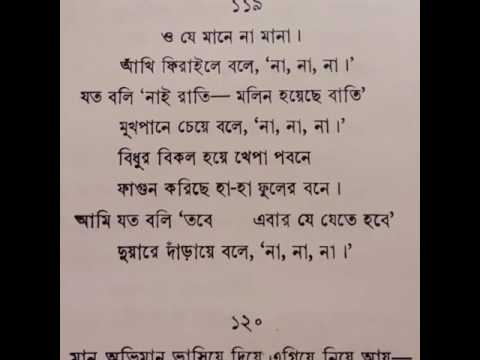 ১১৯
ও যে মানে না মানা।
আঁখি ফিরাইলে বলে, ‘না, না, না।’
যত বলি ‘নাই রাতি— মলিন হয়েছে বাতি’
মুখপানে চেয়ে বলে, ‘না, না, না।’
বিধুর বিকল হয়ে খেপা পবনে
ফাগুন করিছে হা-হা ফুলের বনে।
আমি যত বলি ‘তবে এবার যে যেতে হবে’
দুয়ারে দাঁড়ায়ে বলে, ‘না, না, না।’
১২০
মান অভিমান ভাসিয়ে দিয়ে এগিয়ে নিয়ে আয়—